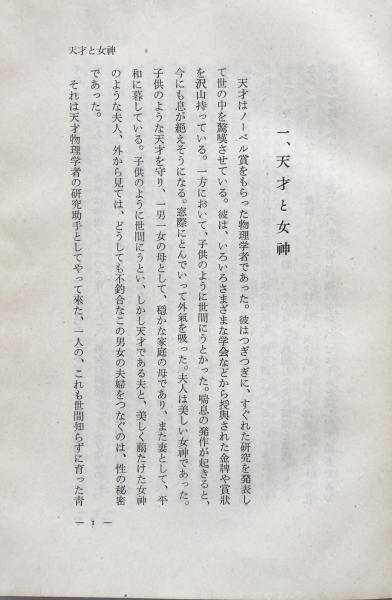 天才と女神
一、天才と女神
天才はノーベル賞をもらった物理学者であった。彼はつぎつぎに、すぐれた研究を発表し
て世の中を驚嘆させている。彼は、いろいろさまざまな学会などから授與された金牌や賞狀
を沢山持っている。一方において、子供のように世間にうとかった。喘息の発作が起きると、
今にも息が絶えそうになる。窓際にとんでいって外氣を吸った。夫人は美しい女神であった。
子供のような天才を守り、一男一女の母として、穏かな家庭の母であり、また妻として、平
和に暮している。子供のように世間にうとい、しかし天才である夫と、美しく﨟たけた女神
のような夫人、外から見ては、どうしても不釣合なこの男女の夫婦をつなぐのは、性の秘密
であった。
それは天才物理学者の研究助手としてやって來た、一人の、これも世間知らずに育った青
— 1 —